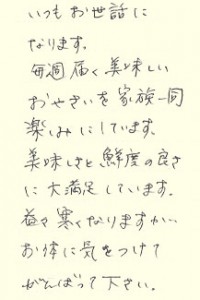 いつもお世話に
なります。
毎週届く美味しい
おやさいを家族一同
楽しみにしています。
美味しさと鮮度の良さ
に大満足しています。
益々寒くなりますが…
お体に気をつけて
がんばって下さい。